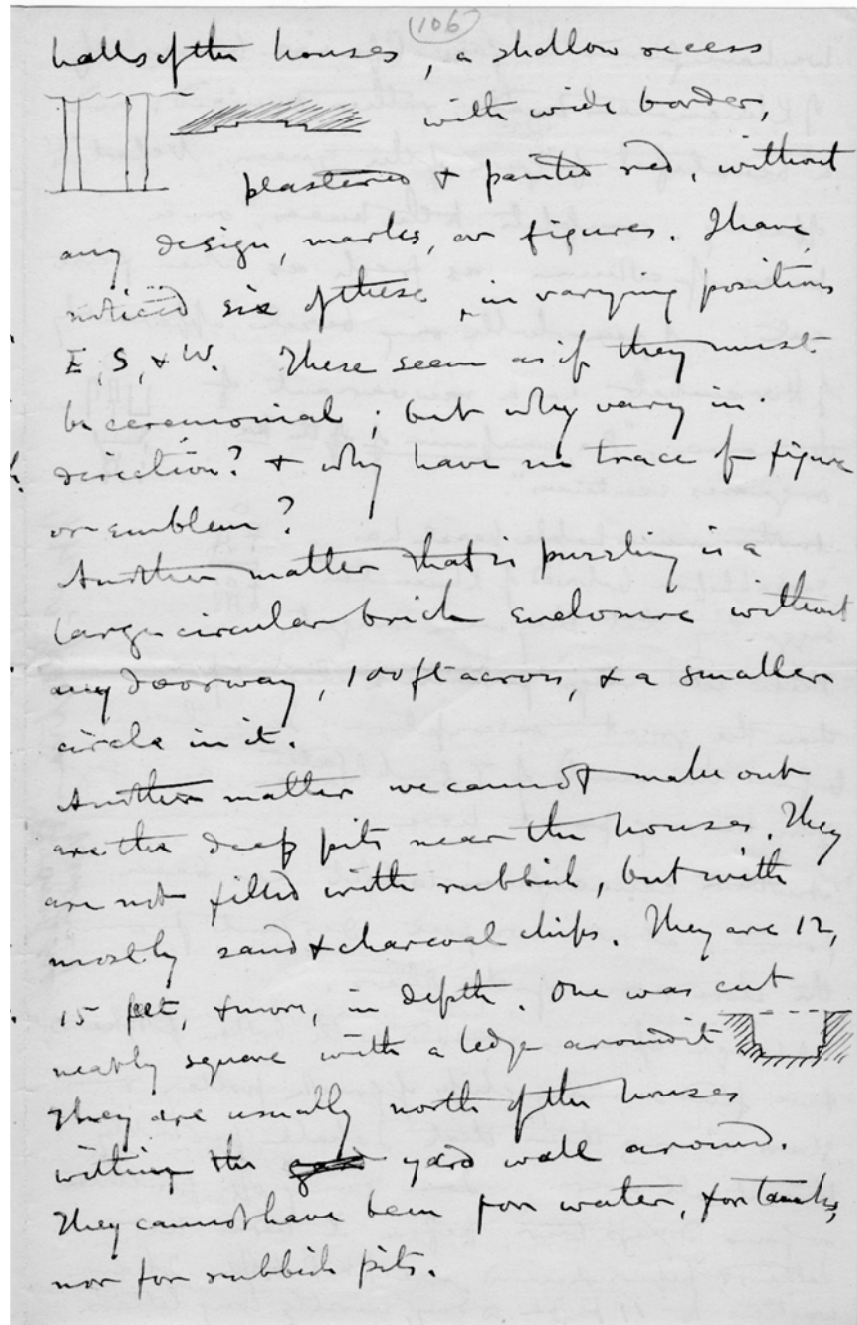 (106)
halls of the houses, a shallow recess
with wide border,
plastered & painted red, without
any design, marks, or figures. I have
noticed six of these, in varying positions
E, S, & W. These seem as if they must
be ceremonial; but why vary in
direction? & why have no trace of figure
or emblem?
Another matter that is puzzling is a
large circular brick enclosure without
any doorway, 100 ft across, & a smaller
circle in it.
Another matter we cannot make out
are the deep pits near the houses. They
are not filled with rubbish, but with
mostly sand & charcoal chips. They are 12,
15 feet, & more, in depth. One was cut
neatly square with a ledge around it
They are usually north of the houses
within the yard wall around.
They cannot have been for water, for tanks,
nor for rubbish pits.